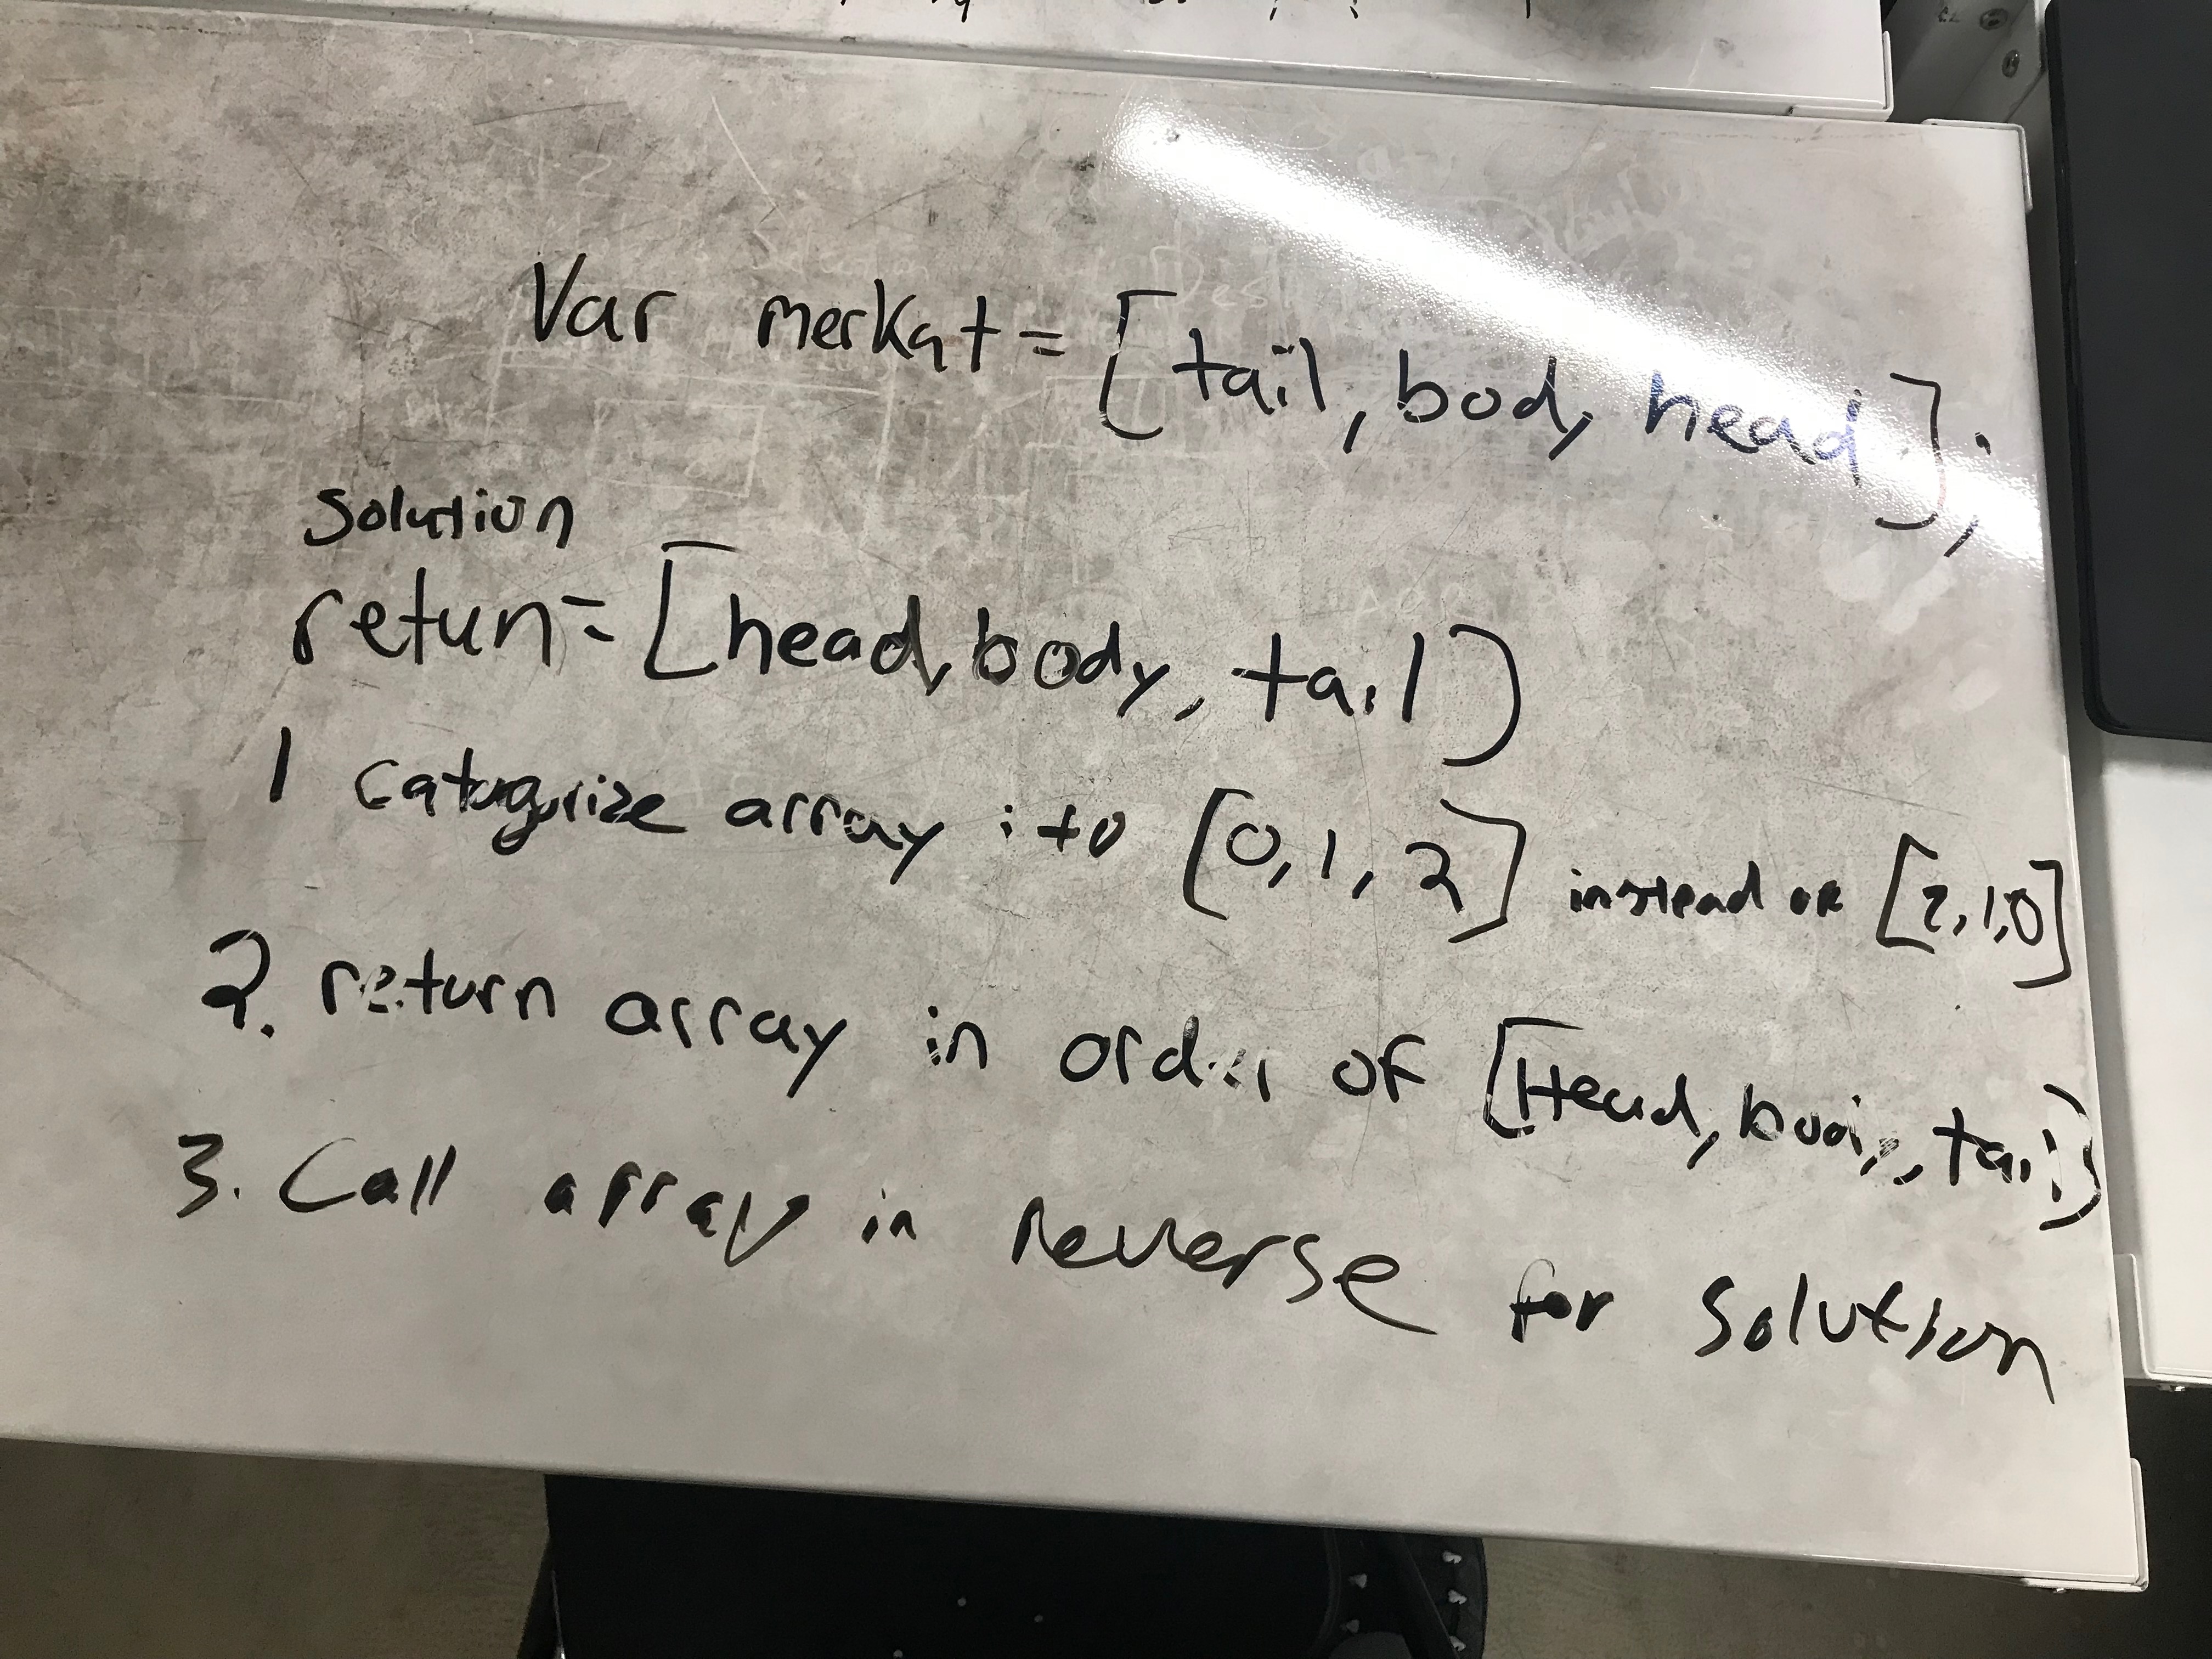 Var merkat = [tail, body, head];
Solution
return = [head, body, tail]
1 Catagorize array ito [0, 1, 2] instead of [2, 1, 0]
2. return array in order of [Head, body, tail]
3. Call array in reverse for Solution